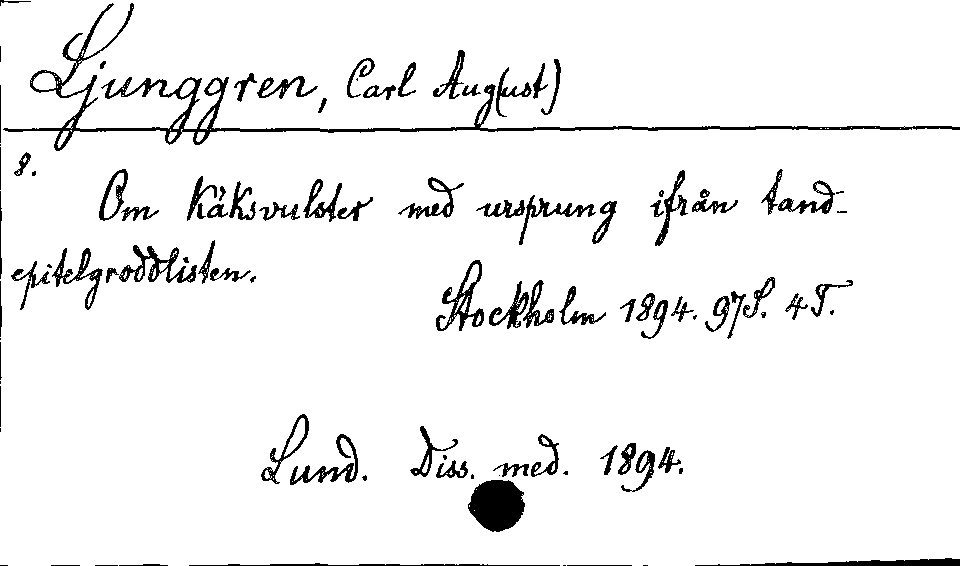 Ljunggren, Carl Aug(ust)
8.
Om Käksvulster med ursprung ifrån tand-
epitelgroddlisten.
Stockholm 1894. 97 S. 4 T.
Lund. Diss. med. 1894.